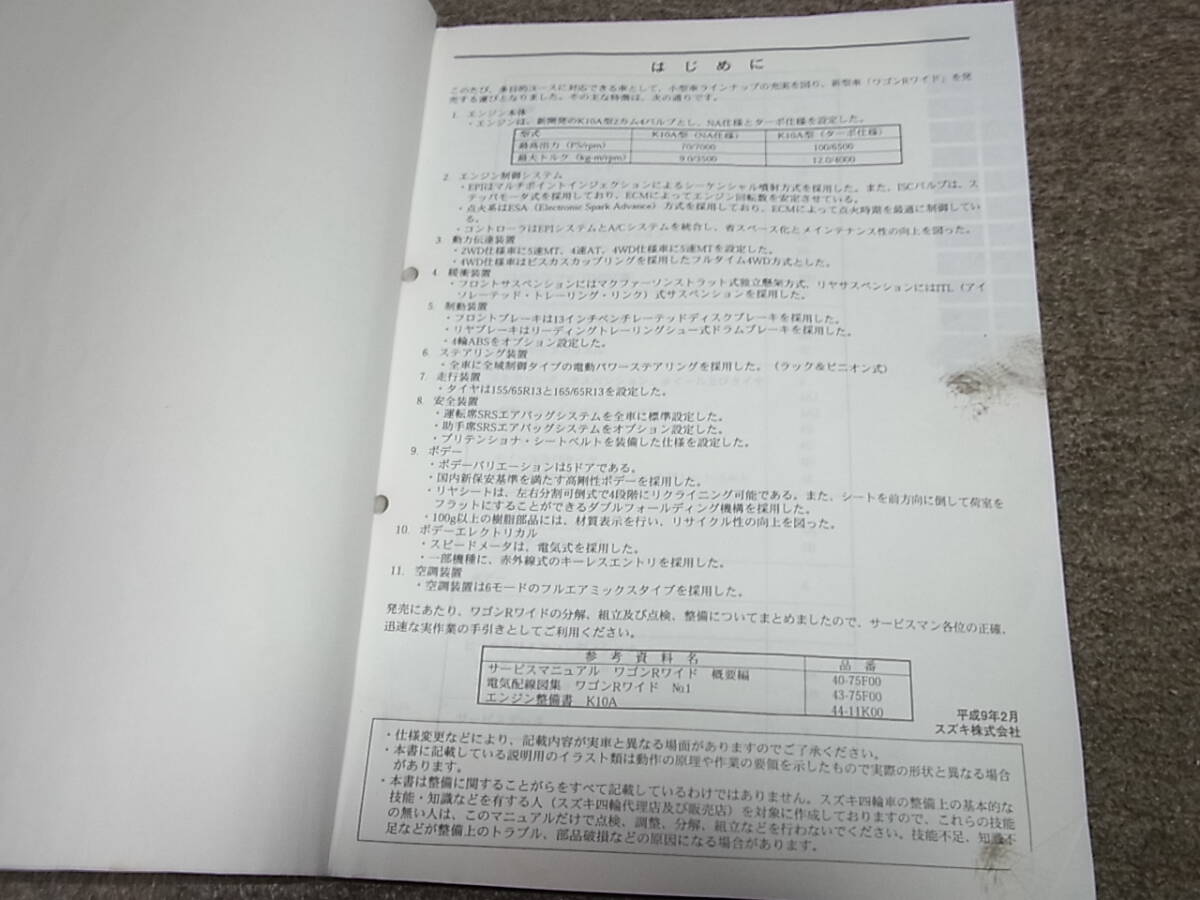 はじめに
このたび、多目的ユースに対応できる車として、小型車ラインナップの充実を図り、新型車「ワゴンRワイド」を発
売する運びとなりました。その主な特徴は、次の通りです。
1. エンジン本体
・エンジンは、新開発のK10A型2カム4バルブとし、NA仕様とターボ仕様を設定した。
型式 K10A型（NA仕様） K10A型（ターボ仕様）
最高出力（PS/rpm） 70/7000 100/6500
最大トルク（kg-m/rpm） 9.0/3500 12.0/4000
2. エンジン制御システム
・EPIはマルチポイントインジェクションによるシーケンシャル噴射方式を採用した。また、ISCバルブは、ス
テッパモータ式を採用しており、ECMによってエンジン回転数を安定させている。
・点火系はESA（Electronic Spark Advance）方式を採用しており、ECMによって点火時期を最適に制御してい
る。
・コントローラはEPIシステムとA/Cシステムを統合し、省スペース化とメインテナンス性の向上を図った。
3. 動力伝達装置
・2WD仕様車に5速MT、4速AT、4WD仕様車に5速MTを設定した。
・4WD仕様車はビスカスカップリングを採用したフルタイム4WD方式とした。
4. 緩衝装置
・フロントサスペンションにはマクファーソンストラット式独立懸架方式、リヤサスペンションにはITL（アイ
ソレーテッド・トレーリング・リンク）式サスペンションを採用した。
5. 制動装置
・フロントブレーキは13インチベンチレーテッドディスクブレーキを採用した。
・リヤブレーキはリーディングトレーリングシュー式ドラムブレーキを採用した。
・4輪ABSをオプション設定した。
6. ステアリング装置
・全車に全域制御タイプの電動パワーステアリングを採用した。（ラック＆ピニオン式）
7. 走行装置
・タイヤは155/65R13と165/65R13を設定した。
8. 安全装置
・運転席SRSエアバッグシステムを全車に標準設定した。
・助手席SRSエアバッグシステムをオプション設定した。
・プリテンショナ・シートベルトを装備した仕様を設定した。
9. ボデー
・ボデーバリエーションは5ドアである。
・国内新保安基準を満たす高剛性ボデーを採用した。
・リヤシートは、左右分割可倒式で4段階にリクライニング可能である。また、シートを前方向に倒して荷室を
フラットにすることができるダブルフォールディング機構を採用した。
・100g以上の樹脂部品には、材質表示を行い、リサイクル性の向上を図った。
10. ボデーエレクトリカル
・スピードメータは、電気式を採用した。
・一部機種に、赤外線式のキーレスエントリを採用した。
11. 空調装置
・空調装置は6モードのフルエアミックスタイプを採用した。
発売にあたり、ワゴンRワイドの分解、組立及び点検、整備についてまとめましたので、サービスマン各位の正確、
迅速な実作業の手引きとしてご利用ください。
参考資料名 品番
サービスマニュアル ワゴンRワイド 概要編 40-75F00
電気配線図集 ワゴンRワイド №1 43-75F00
エンジン整備書 K10A 44-11K00
平成9年2月
スズキ株式会社
・仕様変更などにより、記載内容が実車と異なる場面がありますのでご了承ください。
・本書に記載している説明用のイラスト類は動作の原理や作業の要領を示したもので実際の形状と異なる場合
があります。
・本書は整備に関することがらをすべて記載しているわけではありません。スズキ四輪車の整備上の基本的な
技能・知識などを有する人（スズキ四輪代理店及び販売店）を対象に作成しておりますので、これらの技能
の無い人は、このマニュアルだけで点検、調整、分解、組立などを行わないでください。技能不足、知識不
足などが整備上のトラブル、部品破損などの原因になる場合があります。